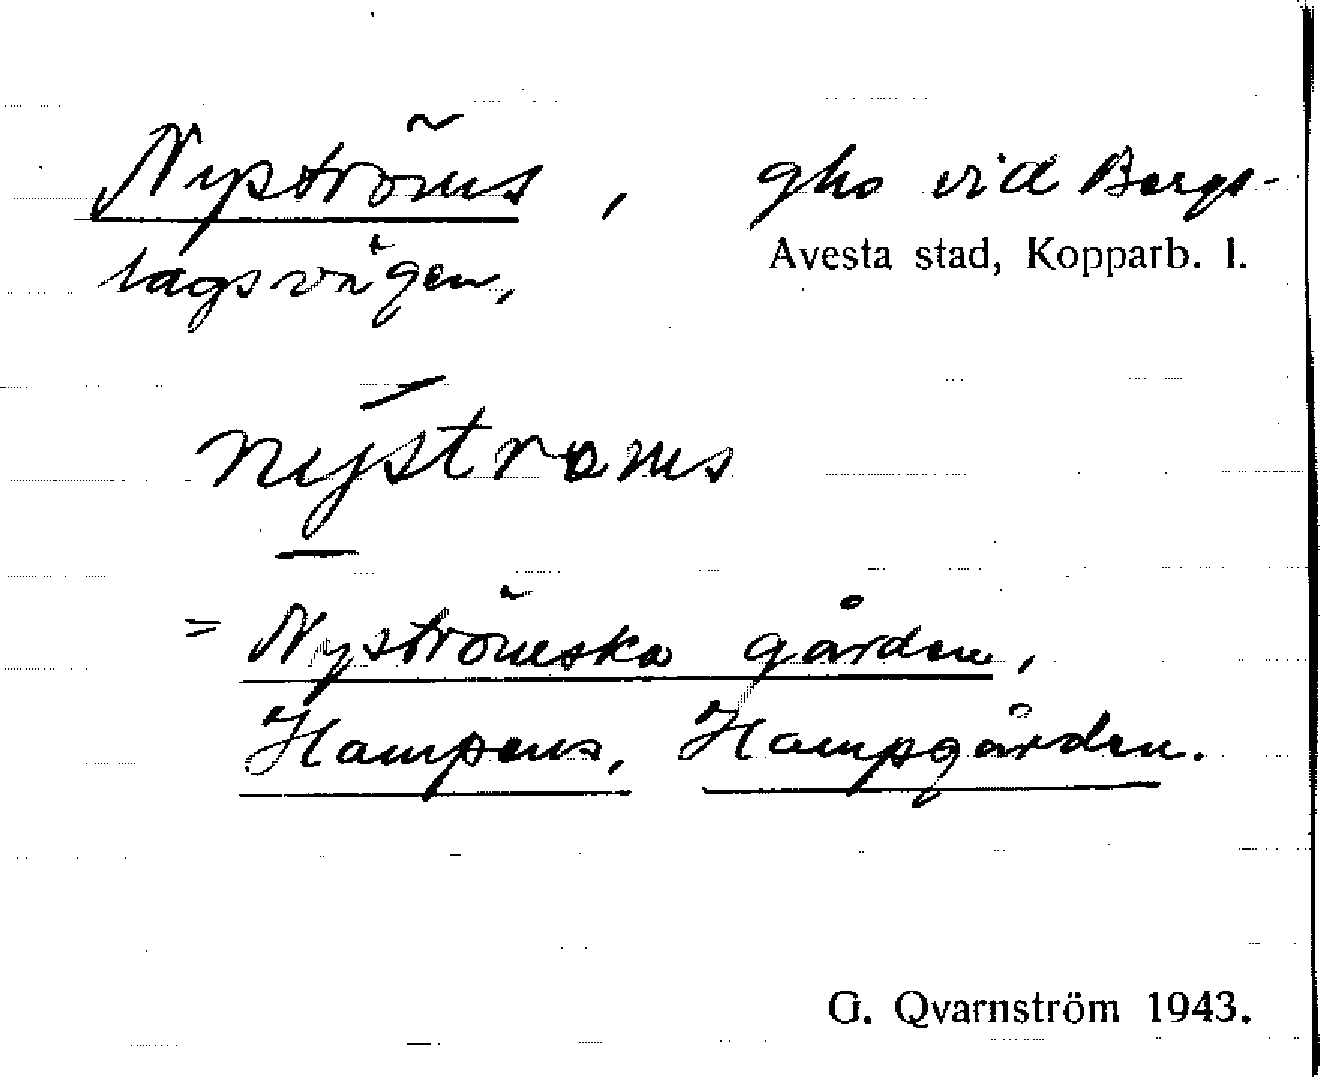 Nyströms, gho vid Bergs-
Avesta stad, Kopparb. l.
lagsvägen,
nystroms
= Nyströmska gården,
Hampens, Hampgården.
G. Qvarnström 1943.